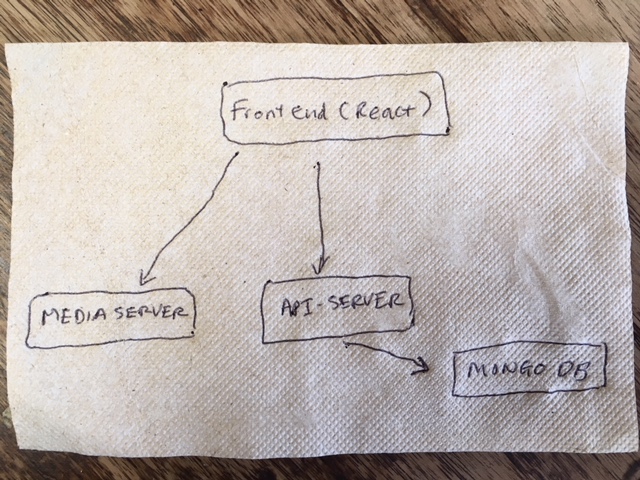 Frontend (React)
MEDIA SERVER
API-SERVER
MONGO DB